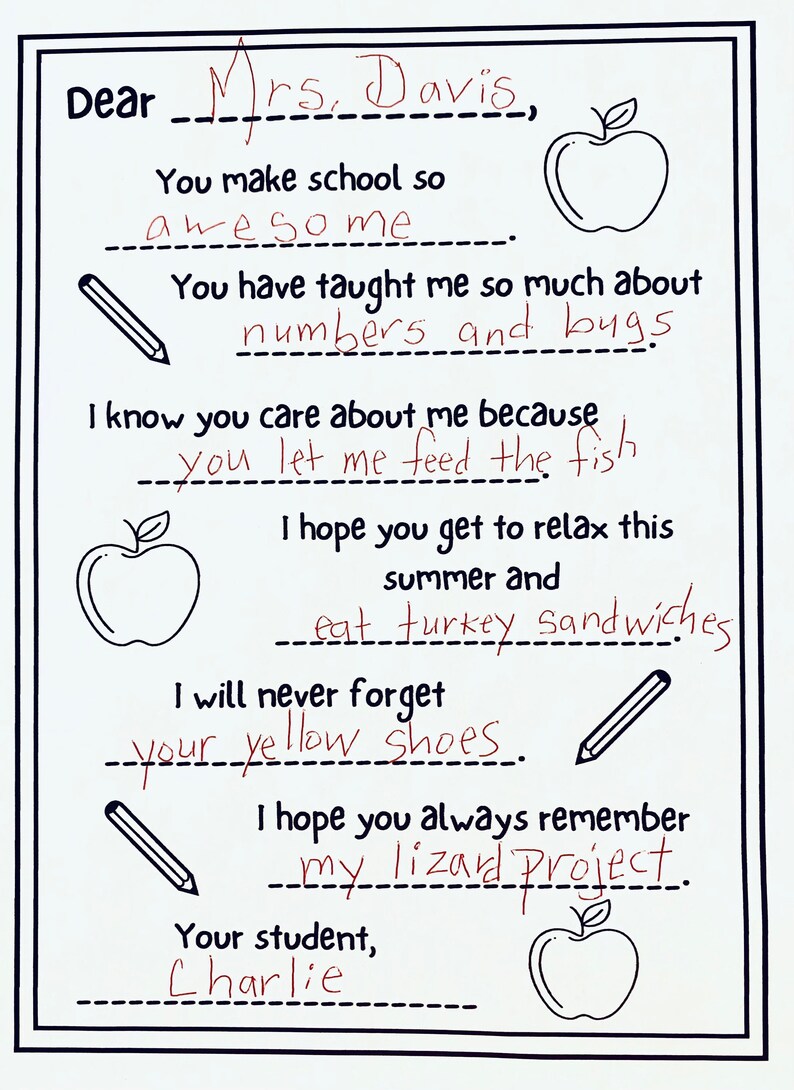 Dear Mrs. Davis,
You make school so
awesome.
You have taught me so much about
numbers and bugs.
I know you care about me because
you let me feed the fish.
I hope you get to relax this
summer and
eat turkey sandwiches.
I will never forget
your yellow shoes.
I hope you always remember
my lizard project.
Your student,
Charlie